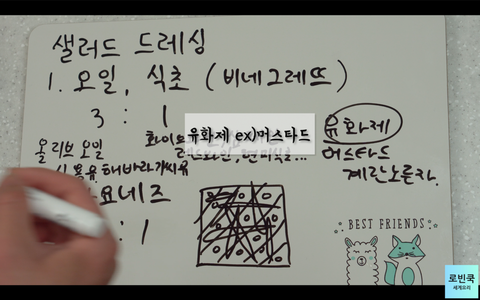 샐러드 드레싱
1. 오일, 식초 (비네그레뜨)
3 : 1
유화제 ex)머스타드
유화제
머스타드
계란노른자
올리브 오일
해바라기씨유
: 1
BEST FRIENDS
로빈쿡
세계요리